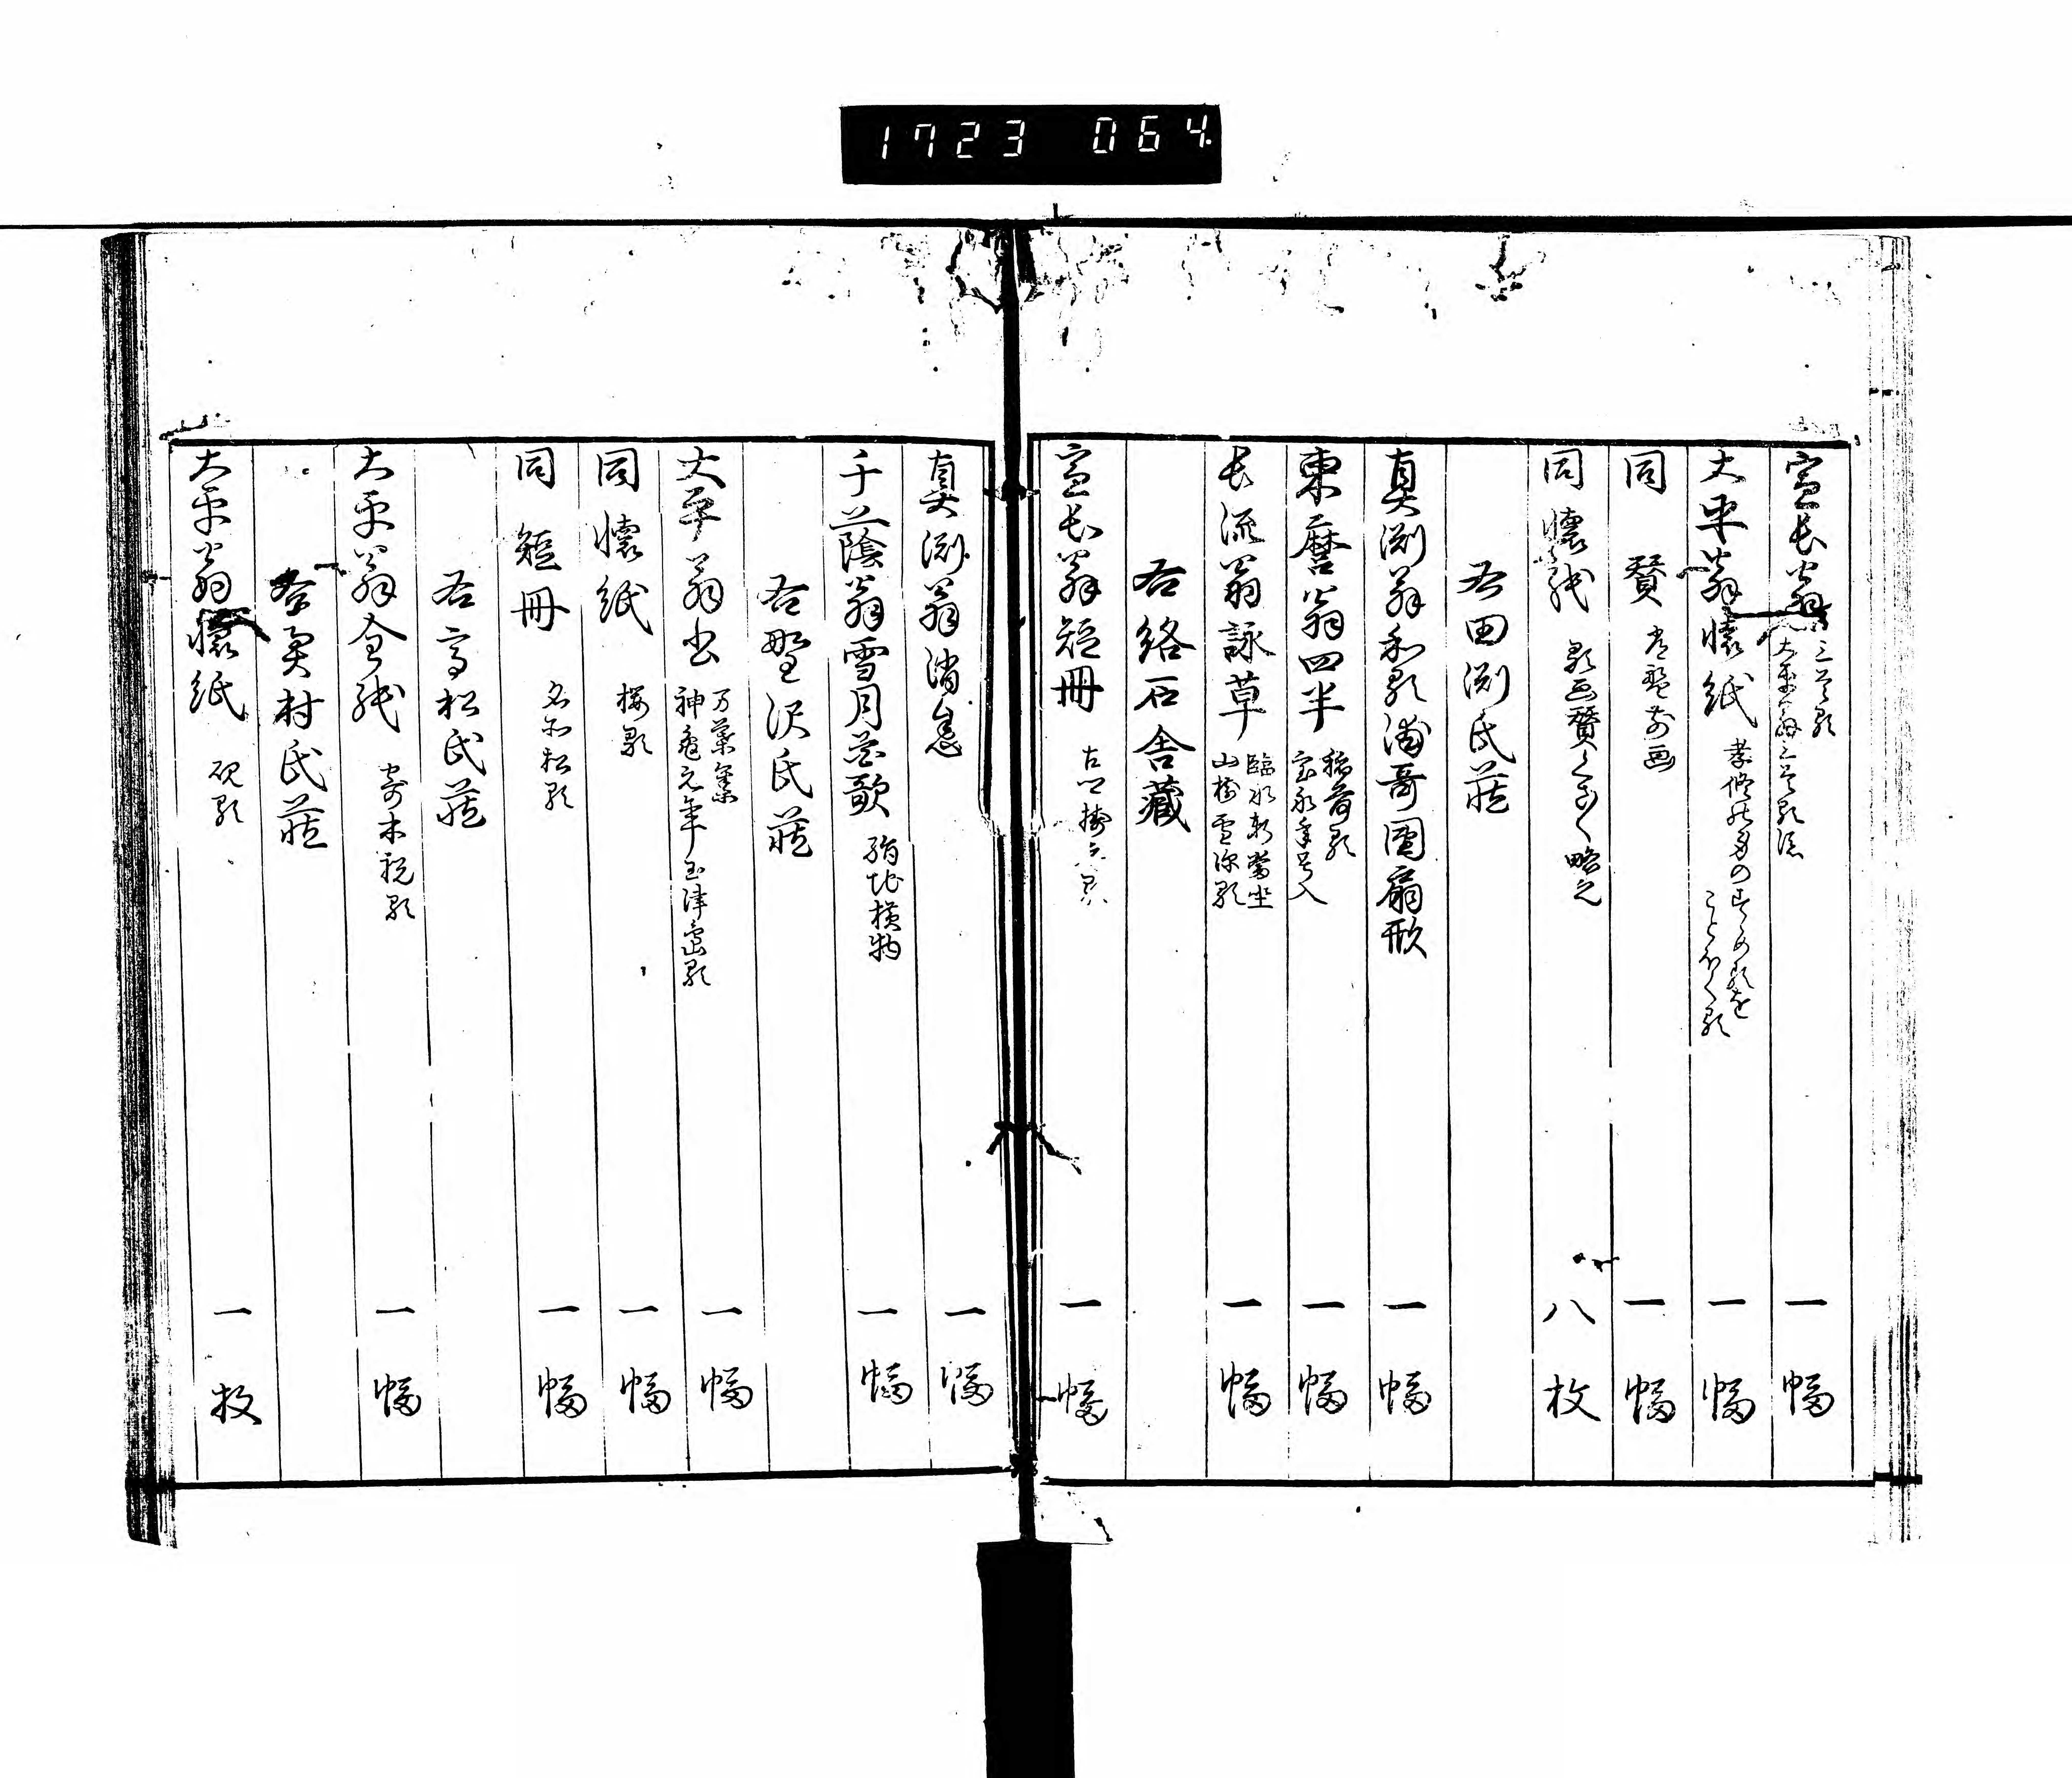 1723 064
宣長翁 三首歌 大平翁三首歌添 一幅
大平翁懐紙 ことほく歌 一幅
同 賛 画 一幅
同 懐紙 歌画賛 略之 八枚
右田渕氏蔵
真渕翁和歌浦哥團扇形 一幅
東麿翁四半 稲荷歌 宝永年号入 一幅
長流翁詠草 臨水 山村雪深歌 一幅
右絡石舎蔵
宣長翁短冊 一幅
真渕翁消息 一幅
千蔭翁雪月花歌 絹地横物 一幅
右野沢氏蔵
大平翁書 万葉集 神亀元年玉津島歌 一幅
同 懐紙 桜歌 一幅
同 短冊 名所松歌 一幅
右高松氏蔵
大平翁全紙 寄木祝歌 一幅
右奥村氏蔵
大平翁懐紙 硯歌 一枚